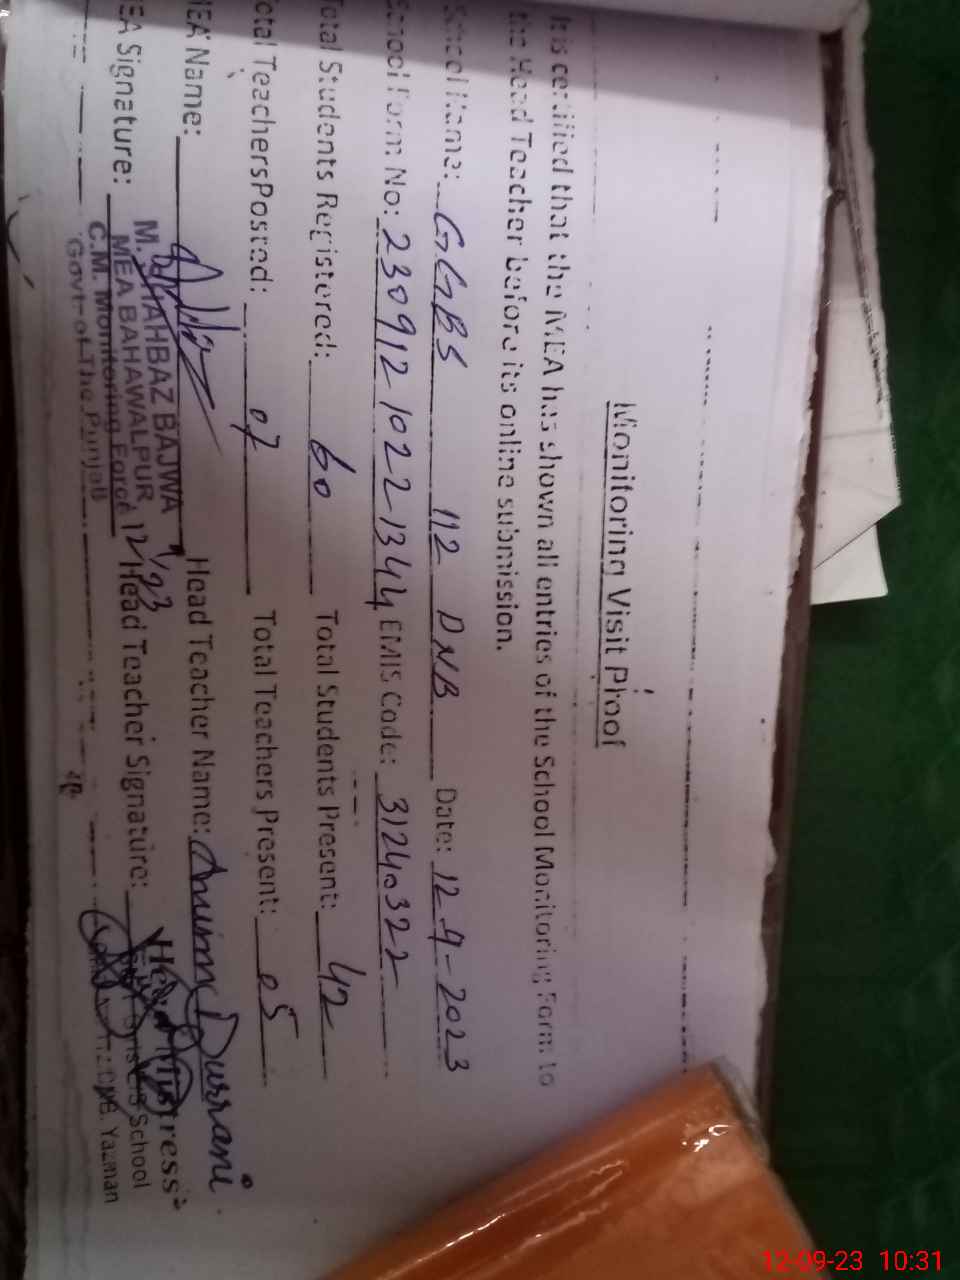 Monitoring Visit Proof
It is certified that the MEA has shown all entries of the School Monitoring Form to
the Head Teacher before its online submission.
School Name: GGBS 112 DNB Date: 12-9-2023
School Form No: 23091210221344 EMIS Code: 31240322
Total Students Registered: 60 Total Students Present: 42
Total TeachersPosted: 07 Total Teachers Present: 05
MEA Name: Head Teacher Name: Durrani
MEA Signature: Head Teacher Signature:
M. SHAHBAZ BAJWA
MEA BAHAWALPUR
C.M. Monitoring Force
Govt of The Punjab
Headmistress
School
Yazman
12-09-23 10:31